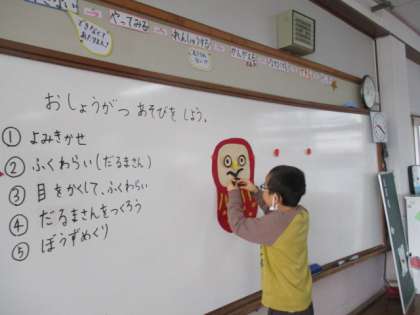 やってみる
れんしゅうする
おしょうがつ あそびを しよう。
① よみきかせ
② ふくわらい(だるまさん)
③ 目をかくして、ふくわらい
④ だるまさんをつくろう
⑤ ぼうずめくり